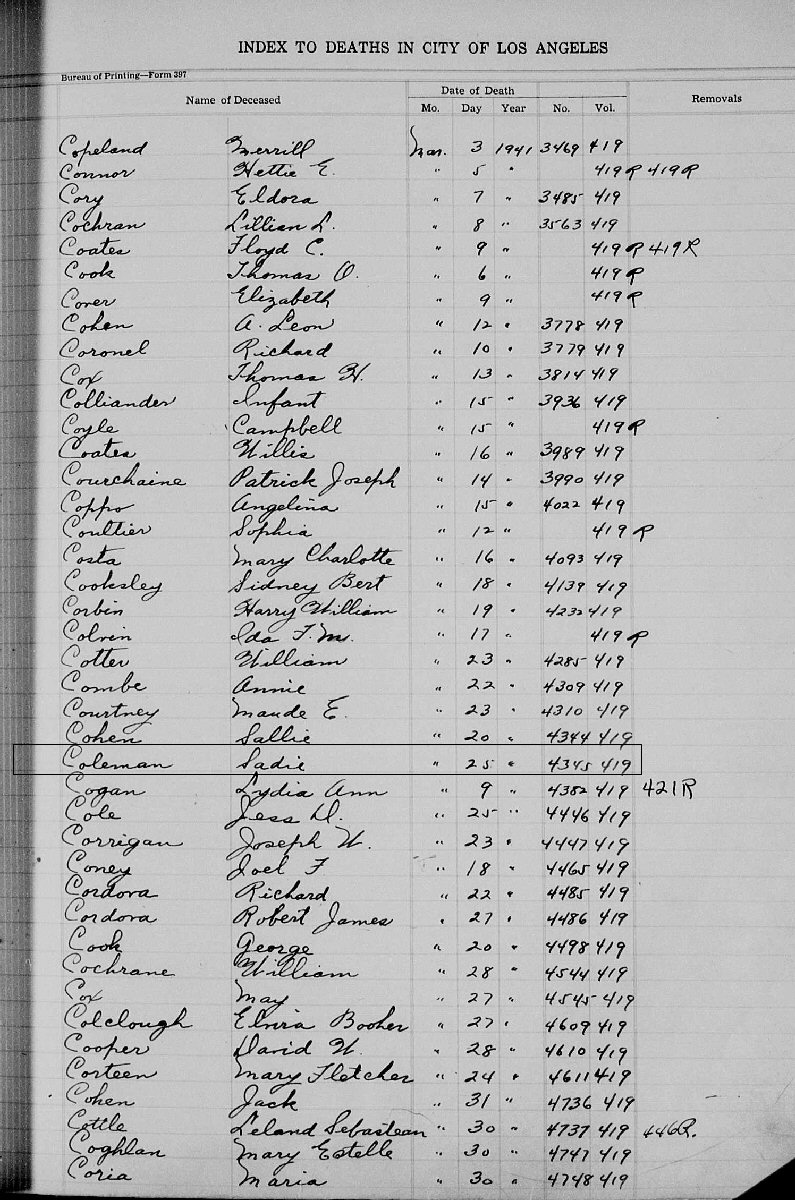 INDEX TO DEATHS IN CITY OF LOS ANGELES
Bureau of Printing—Form 397
Name of Deceased Date of Death Removals
Mo. Day Year No. Vol.
Copeland Merrill Mar. 3 1941 3469 419
Connor Hettie E. " 5 " 419R 419R
Cory Eldora " 7 " 3485 419
Cochran Lillian L. " 8 " 3563 419
Coates Floyd C. " 9 " 419R 419R
Cook Thomas O. " 6 " 419R
Cover Elizabeth " 9 " 419R
Cohen A. Leon " 12 " 3778 419
Coronel Richard " 10 " 3779 419
Cox Thomas H. " 13 " 3814 419
Colliander Infant " 15 " 3936 419
Coyle Campbell " 15 " 419R
Coates Willis " 16 " 3989 419
Courchaine Patrick Joseph " 14 " 3990 419
Coppo Angelina " 15 " 4022 419
Coultier Sophia " 12 " 419R
Costa Mary Charlotte " 16 " 4093 419
Cooksley Sidney Bert " 18 " 4139 419
Corbin Harry William " 19 " 4232 419
Colvin Ida F. M. " 17 " 419R
Cotter William " 23 " 4285 419
Combe Annie " 22 " 4309 419
Courtney Maude E. " 23 " 4310 419
Cohen Sallie " 20 " 4344 419
Coleman Sadie " 25 " 4345 419
Cogan Lydia Ann " 9 " 4382 419 421R
Cole Jess D. " 25 " 4446 419
Corrigan Joseph W. " 23 " 4447 419
Coney Joel F " 18 " 4465 419
Cordova Richard " 22 " 4485 419
Cordova Robert James " 27 " 4486 419
Cook George " 20 " 4498 419
Cochrane William " 28 " 4544 419
Cox May " 27 " 4545 419
Colclough Elvira Booher " 27 " 4609 419
Cooper David W. " 28 " 4610 419
Corteen Mary Fletcher " 24 " 4611 419
Cohen Jack " 31 " 4736 419
Cottle Leland Sebastean " 30 " 4737 419 446R.
Coghlan Mary Estelle " 30 " 4747 419
Coria Maria " 30 " 4748 419